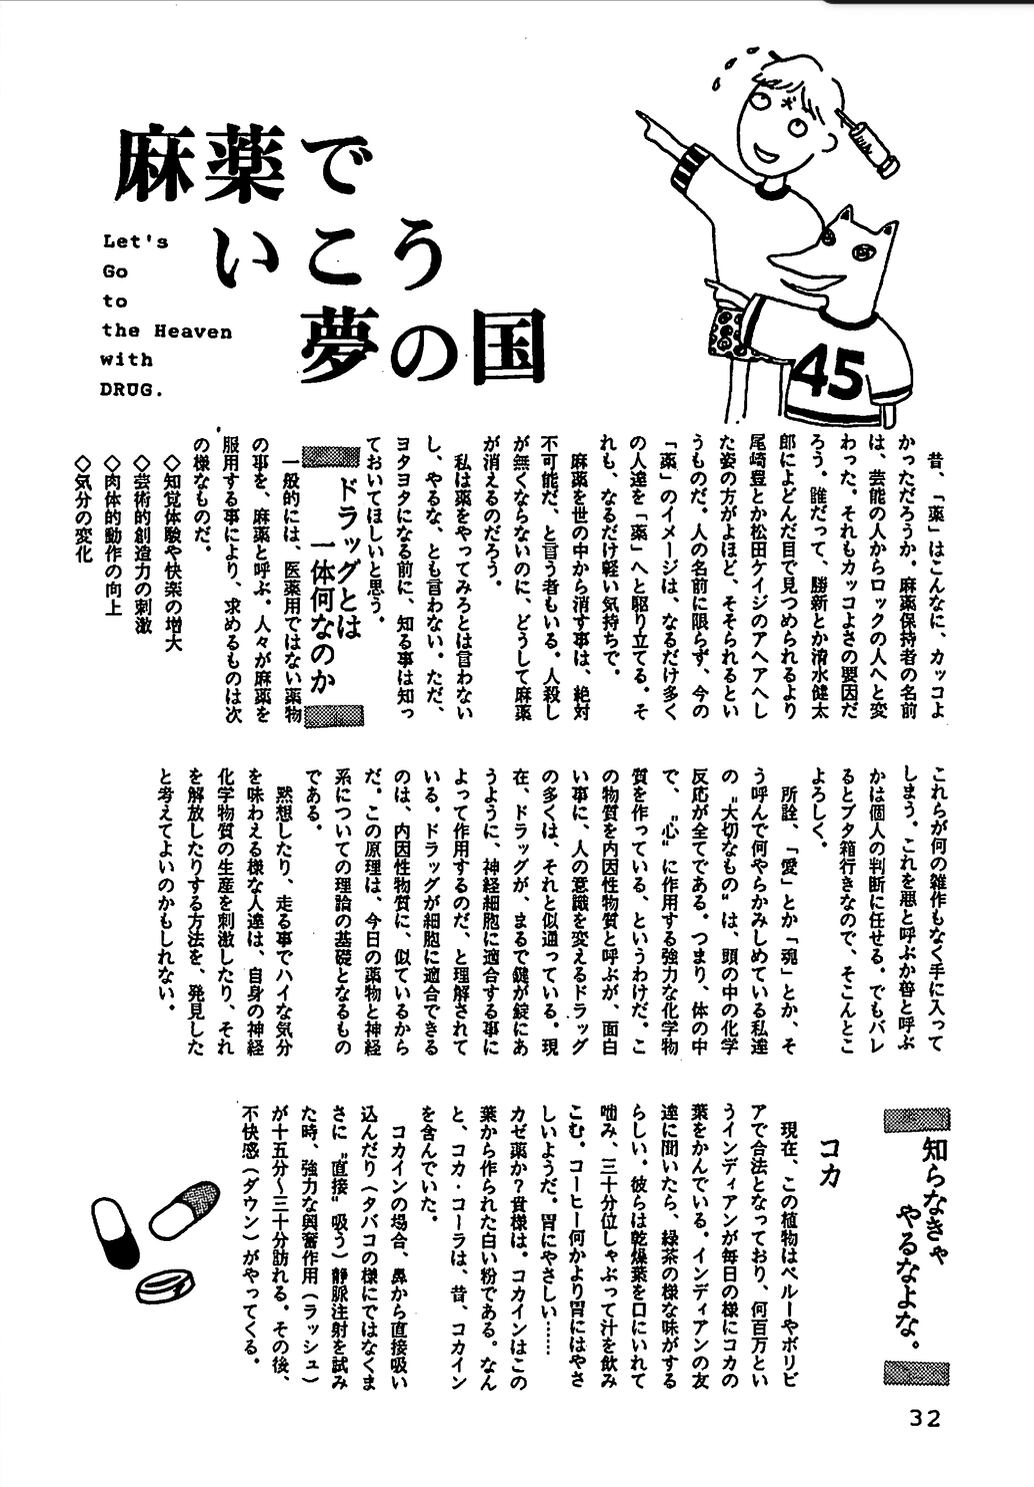 麻薬で
いこう
夢の国
Let's
Go
to
the Heaven
with
DRUG.
45
昔、「薬」はこんなに、カッコよ
かっただろうか。麻薬保持者の名前
は、芸能の人からロックの人へと変
わった。それもカッコよさの要因だ
ろう。誰だって、勝新とか清水健太
郎によどんだ目で見つめられるより
尾崎豊とか松田ケイジのアヘアへし
た姿の方がよほど、そそられるとい
うものだ。人の名前に限らず、今の
「薬」のイメージは、なるだけ多く
の人達を「薬」へと駆り立てる。そ
れも、なるだけ軽い気持ちで。
麻薬を世の中から消す事は、絶対
不可能だ、と言う者もいる。人殺し
が無くならないのに、どうして麻薬
が消えるのだろう。
私は薬をやってみろとは言わない
し、やるな、とも言わない。ただ、
ヨタヨタになる前に、知る事は知っ
ておいてほしいと思う。
ドラッグとは
一体何なのか
一般的には、医薬用ではない薬物
の事を、麻薬と呼ぶ。人々が麻薬を
服用する事により、求めるものは次
の様なものだ。
◇知覚体験や快楽の増大
◇芸術的創造力の刺激
◇肉体的動作の向上
◇気分の変化
これらが何の雑作もなく手に入って
しまう。これを悪と呼ぶか善と呼ぶ
かは個人の判断に任せる。でもバレ
るとブタ箱行きなので、そこんとこ
よろしく。
所詮、「愛」とか「魂」とか、そ
う呼んで何やらかみしめている私達
の〝大切なもの〟は、頭の中の化学
反応が全てである。つまり、体の中
で、〝心〟に作用する強力な化学物
質を作っている、というわけだ。こ
の物質を内因性物質と呼ぶが、面白
い事に、人の意識を変えるドラッグ
の多くは、それと似通っている。現
在、ドラッグが、まるで鍵が錠にあ
うように、神経細胞に適合する事に
よって作用するのだ、と理解されて
いる。ドラッグが細胞に適合できる
のは、内因性物質に、似ているから
だ。この原理は、今日の薬物と神経
系についての理論の基礎となるもの
である。
黙想したり、走る事でハイな気分
を味わえる様な人達は、自身の神経
化学物質の生産を刺激したり、それ
を解放したりする方法を、発見した
と考えてよいのかもしれない。
知らなきゃ
やるなよな。
コカ
現在、この植物はペルーやボリビ
アで合法となっており、何百万とい
うインディアンが毎日の様にコカの
葉をかんでいる。インディアンの友
達に聞いたら、緑茶の様な味がする
らしい。彼らは乾燥葉を口にいれて
噛み、三十分位しゃぶって汁を飲み
こむ。コーヒー何かより胃にはやさ
しいようだ。胃にやさしい……
カゼ薬か?貴様は。コカインはこの
葉から作られた白い粉である。なん
と、コカ・コーラは、昔、コカイン
を含んでいた。
コカインの場合、鼻から直接吸い
込んだり(タバコの様にではなくま
さに〝直接〟吸う)静脈注射を試み
た時、強力な興奮作用(ラッシュ)
が十五分～三十分訪れる。その後、
不快感(ダウン)がやってくる。
32